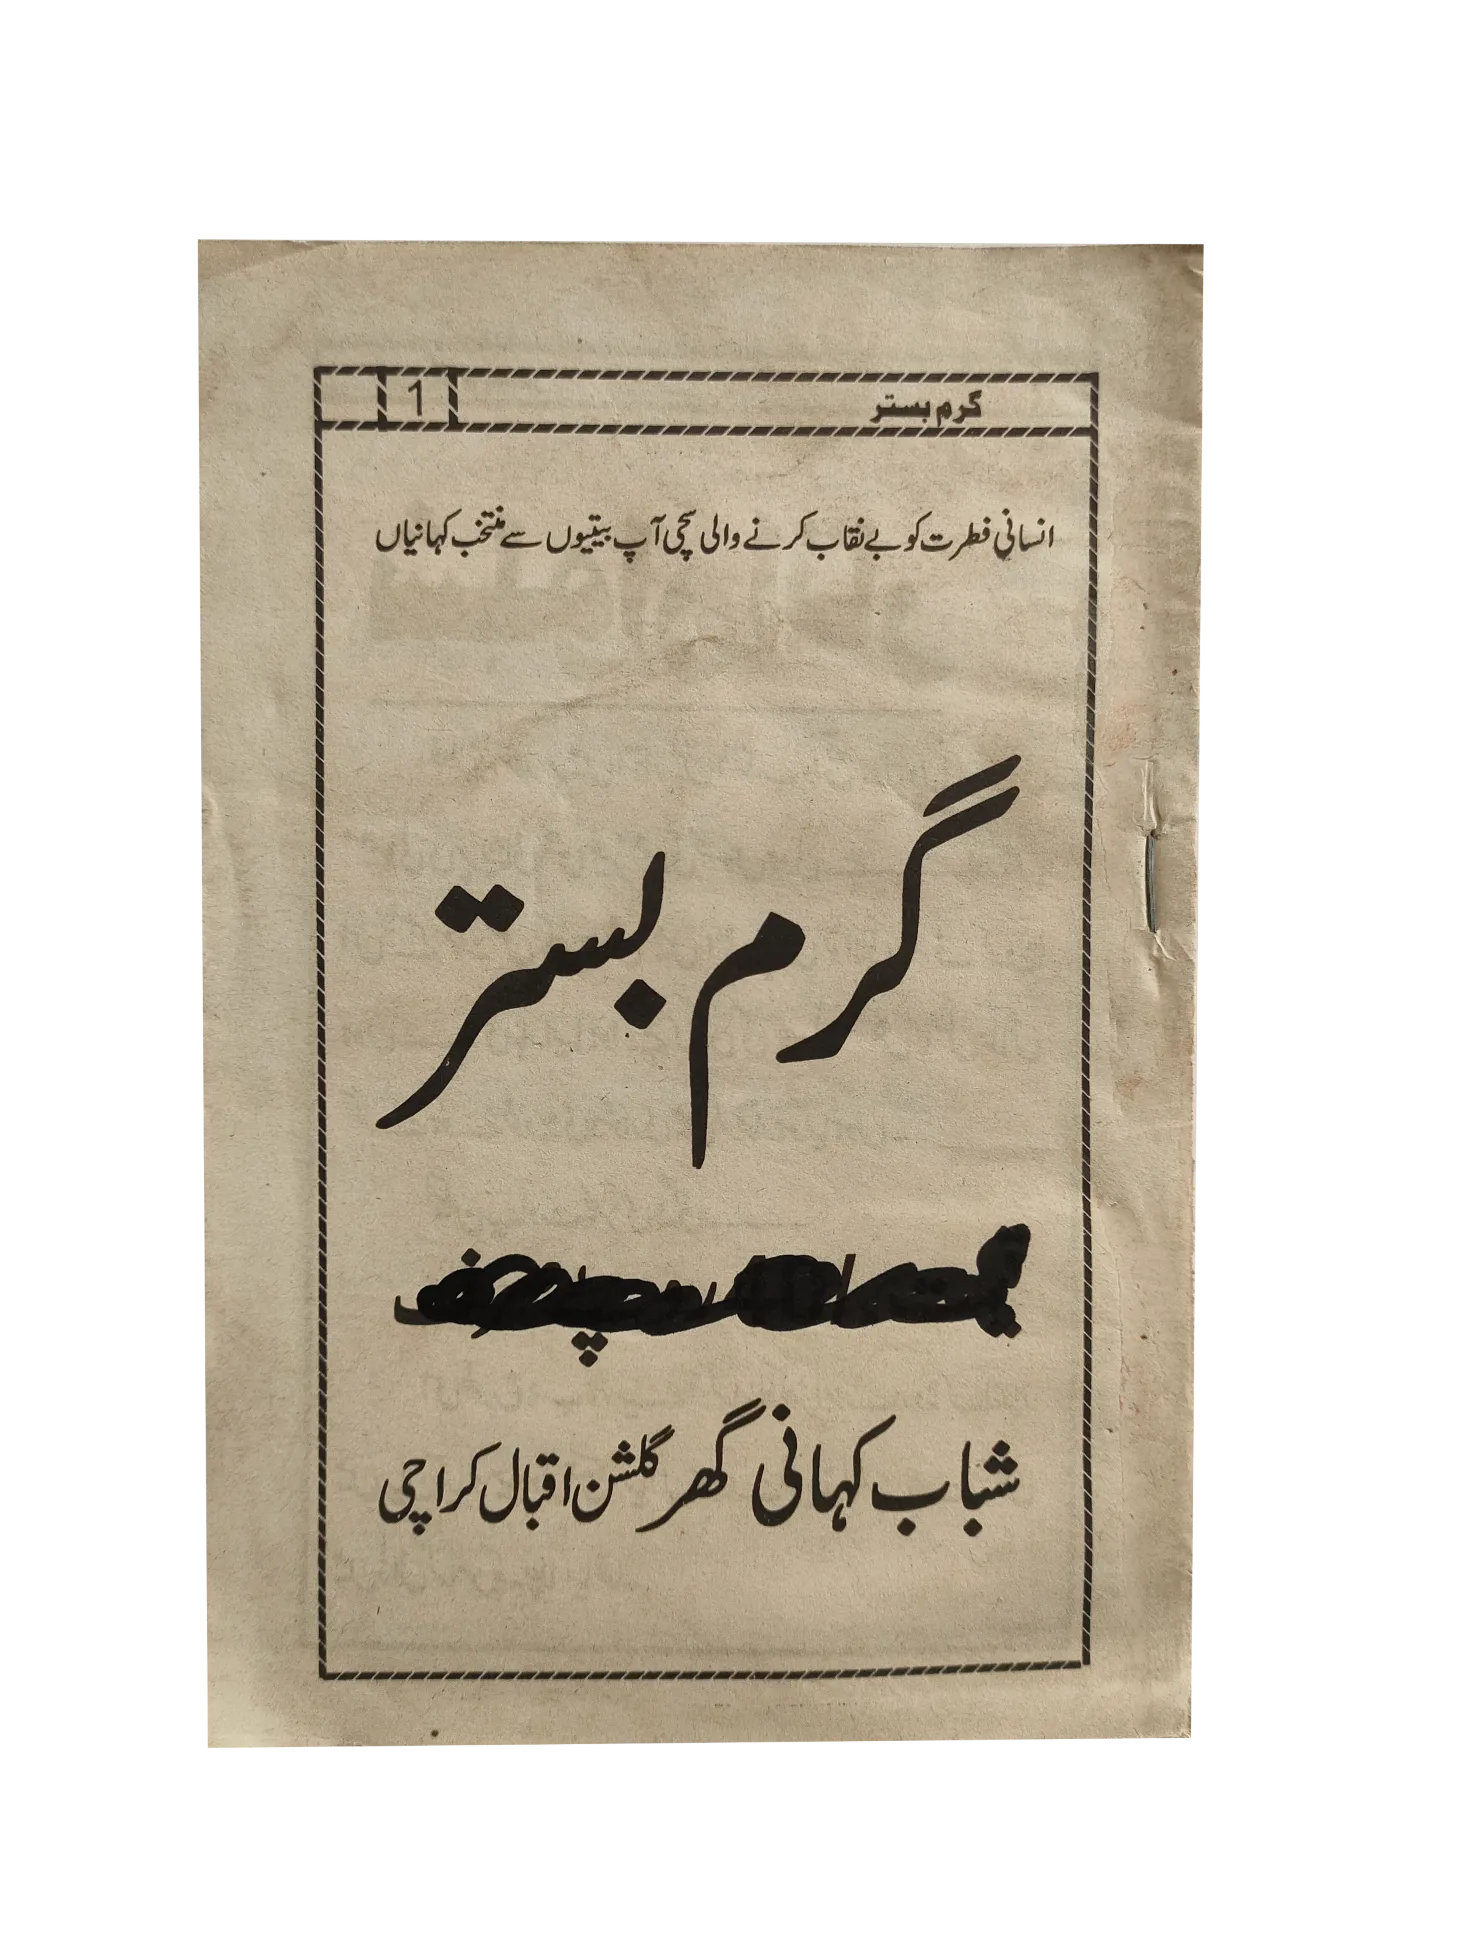 گرم بستر 1
انسانی فطرت کو بے نقاب کرنے والی سچی آپ بیتیوں سے منتخب کہانیاں
گرم بستر
شباب کہانی گھر گلشن اقبال کراچی